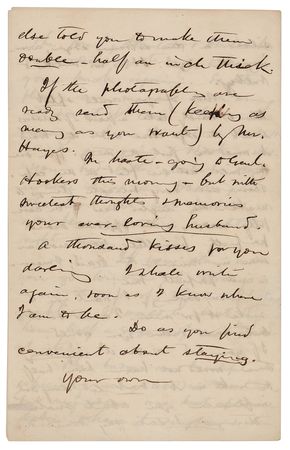 else told you to make them
double - half an inch thick.
If the photographs are
ready send them (keeping as
many as you want) by Mrs.
Hayes. In haste - going to Genl.
Hookers this morning - but with
sweetest thoughts & memories
your ever-loving husband.
A thousand kisses for you
darling. I shall write
again, soon as I know where
I am to be.
Do as you find
convenient about staying.
Your own